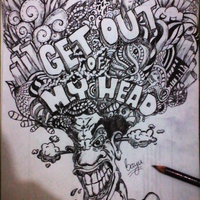 GET OUT
OF
MY HEAD